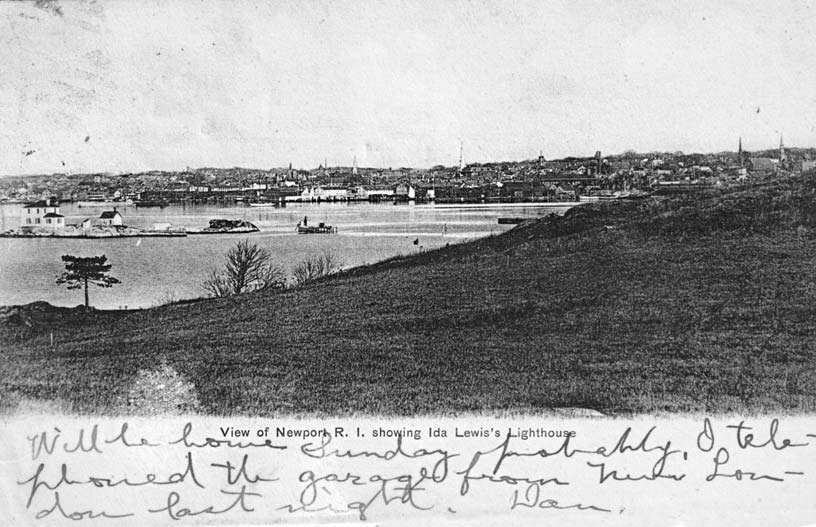 View of Newport R. I. showing Ida Lewis's Lighthouse
Will be home Sunday probably, I tele-
phoned the garage from New Lon-
don last night. Dan.